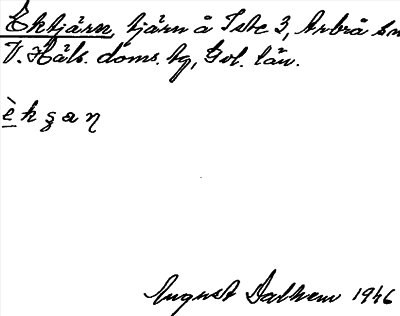 Ektjärn, tjärn å Iste 3, Arbrå sn
V. Häls. doms. tg, Gvl. län.
August Dalhem 1946